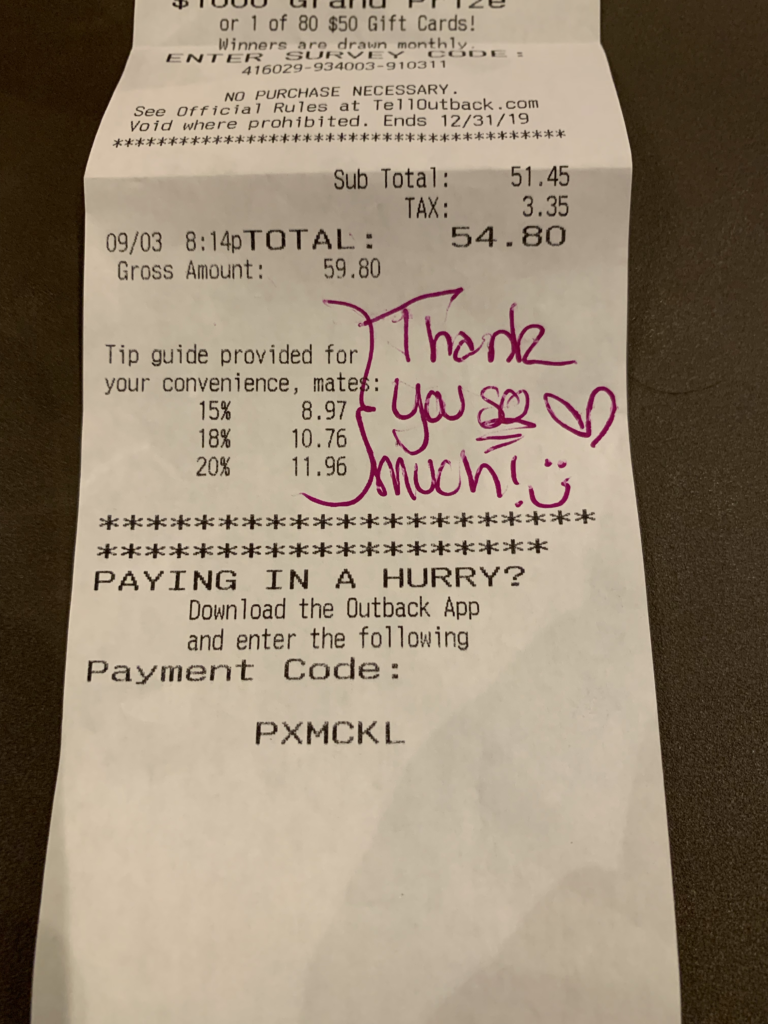 $1000 Grand Prize
or 1 of 80 $50 Gift Cards!
Winners are drawn monthly.
ENTER SURVEY CODE:
416029-934003-910311
NO PURCHASE NECESSARY.
See Official Rules at TellOutback.com
Void where prohibited. Ends 12/31/19
*****************************************
Sub Total: 51.45
TAX: 3.35
09/03 8:14pTOTAL: 54.80
Gross Amount: 59.80
Thank
you so
much!
Tip guide provided for
your convenience, mates:
15% 8.97
18% 10.76
20% 11.96
********************
******************
PAYING IN A HURRY?
Download the Outback App
and enter the following
Payment Code:
PXMCKL